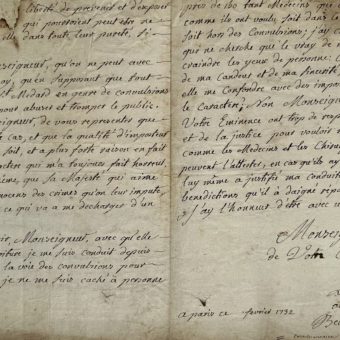 liberté de prevenir et d'exposer
qui pourroient peut être ne
dans toute leur pureté. Si
Monseigneur, qu'on ne peut avec
moy, qu'en supposant que tout
St. Medard en genre de convulsions
pour abuser et tromper le public.
Monseigneur, de vous representer que
cas, et que la qualité d'imposteur
soit, et a plus forte raison en fait
caractere qui m'a toujours fait horreur
que sa Majesté qui aime
innocens des crimes qu'on leur impute
ce qui va a me decharger d'un
Monseigneur, avec qu'elle
droiture je me suis conduit depuis
la voie des convulsions pour
je ne me suis caché a personne
près de 160 tant Medecins que
comme ils ont voulu, soit dans le
soit hors des Convulsions; j'ay
que ne cherche que le vray de
craindre les yeux de personne:
de ma Candeur et de ma sincerité
elle me Confondre avec des impos
le Caractere; Non Monseigneur
Vôtre Eminence est trop de
et de la justice pour vouloir
comme les Medecins et les Chirur
peuvent l'attester, en cas qu'ils
luy même a justifié ma conduite
benedictions qu'il a daigné
j'ay l'honneur d'être avec
Monseig
de Votre
a paris ce fevrier 1732